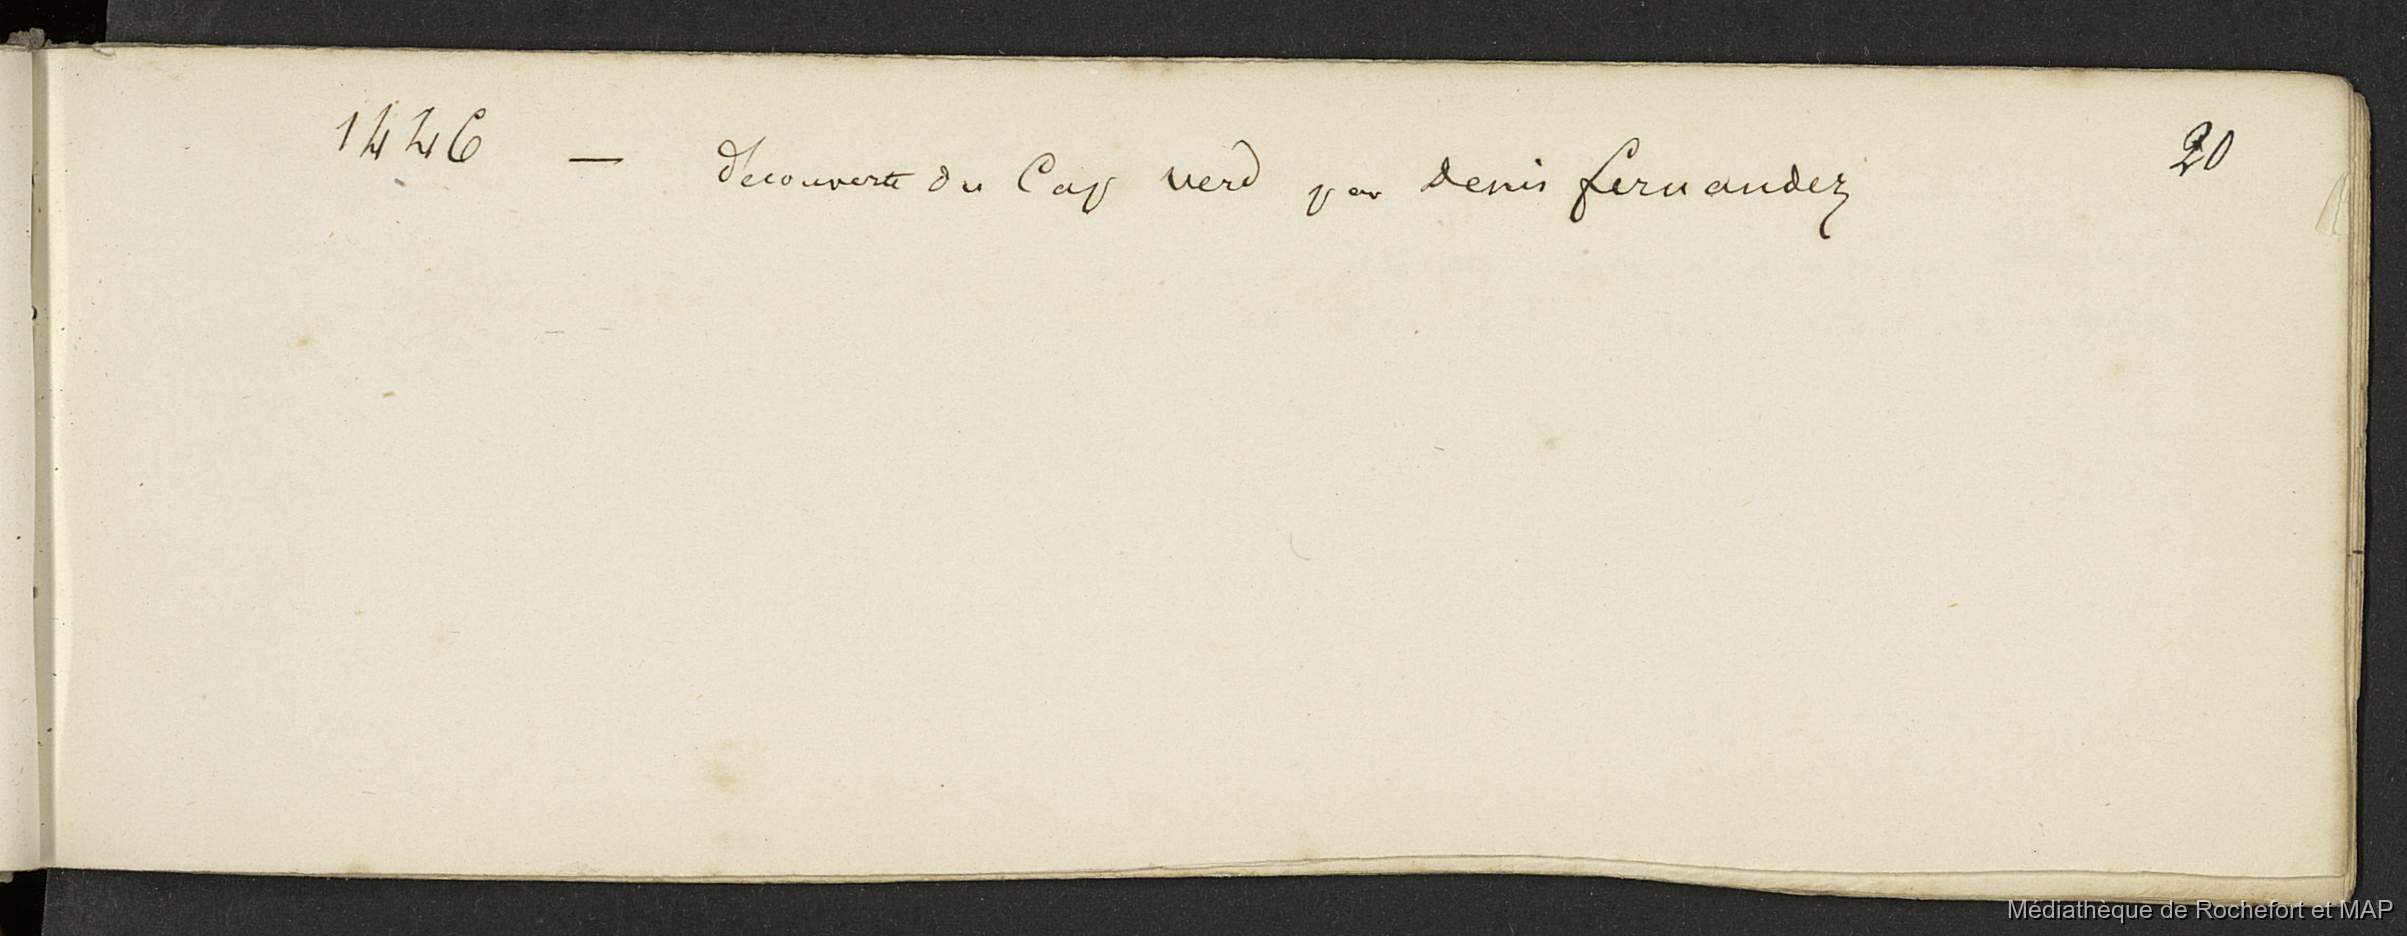 1446 — découverte du Cap verd par Denis fernandez
20
Médiathèque de Rochefort et MAP